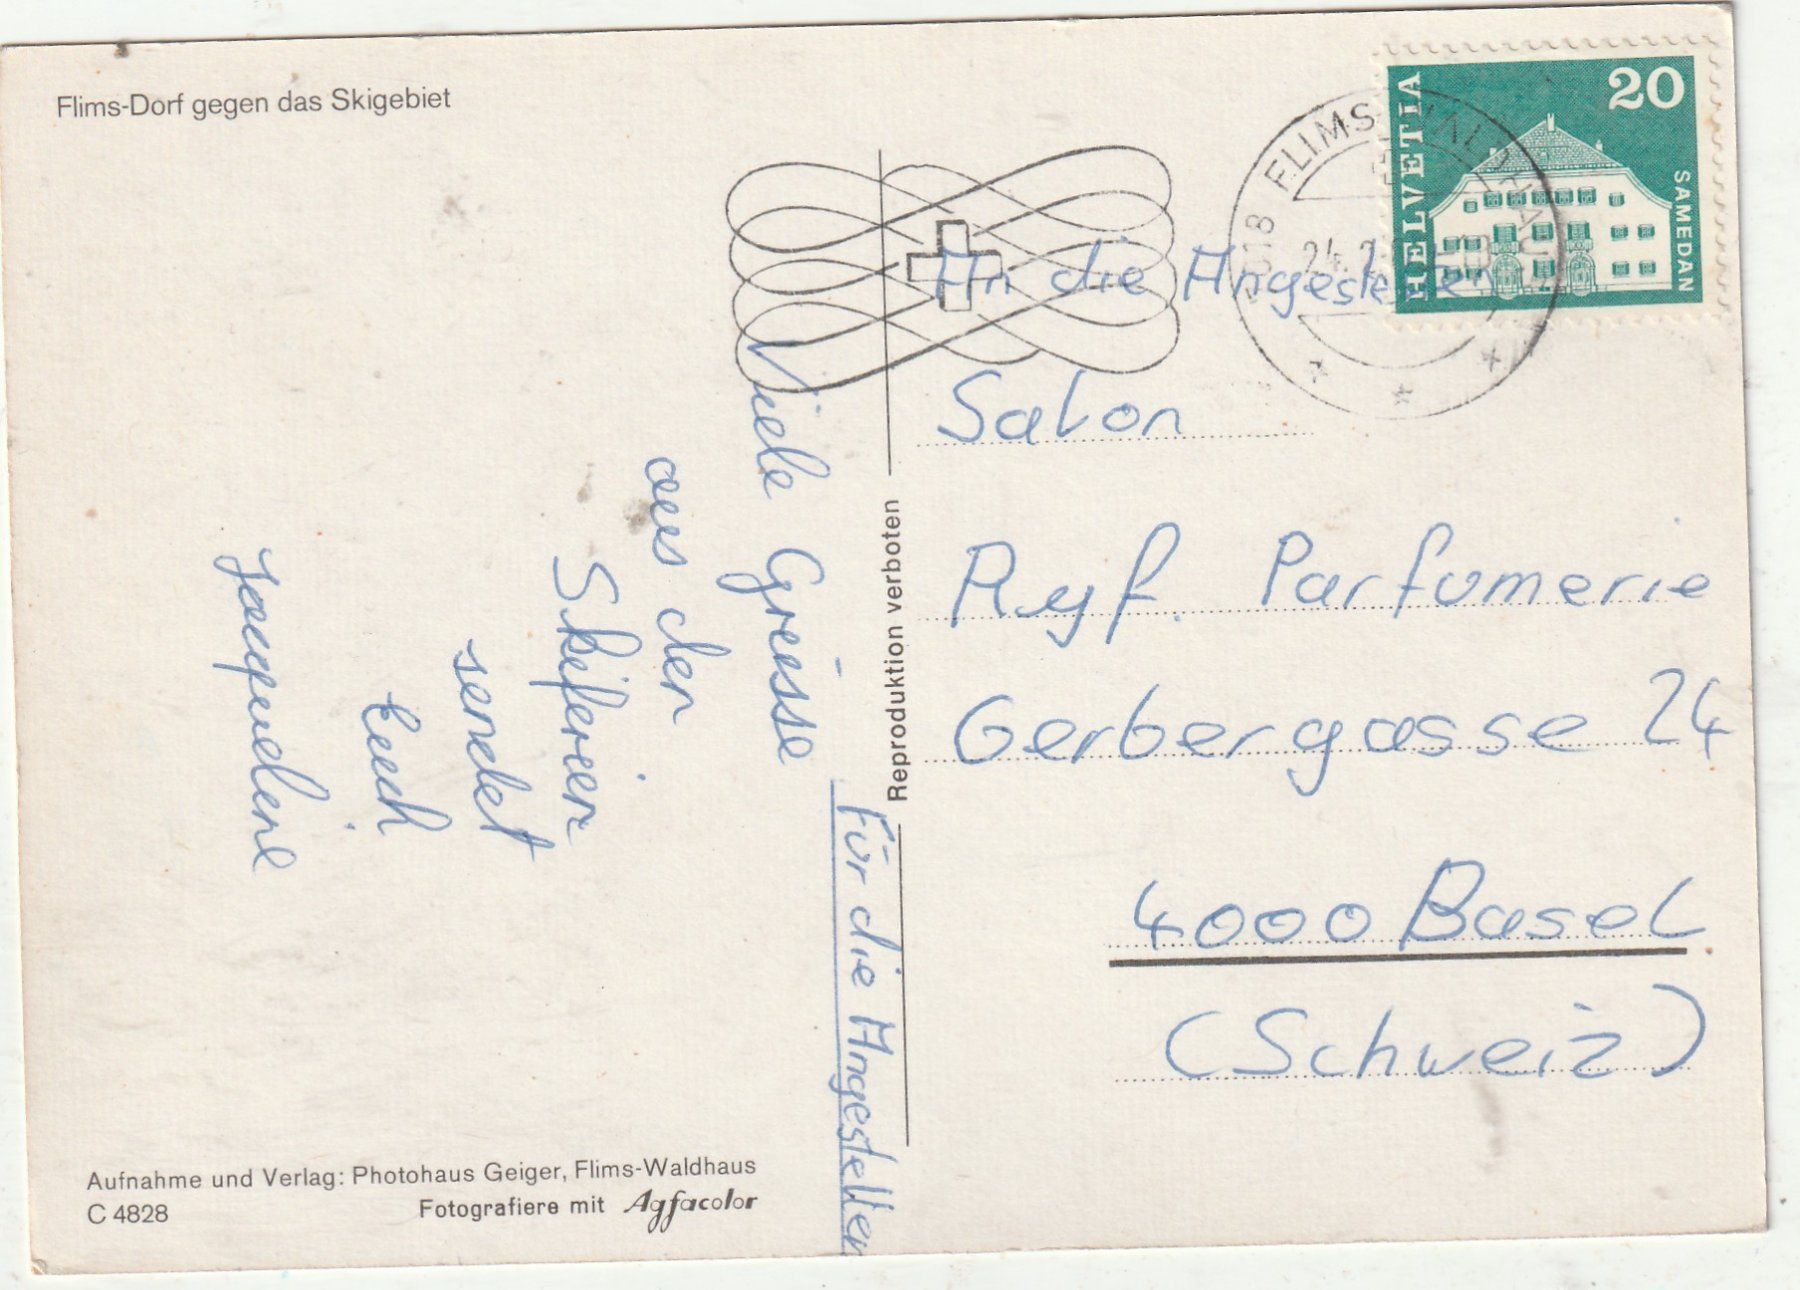 Flims-Dorf gegen das Skigebiet
Viele Grüsse
aus den
Skiferien
sendet
Euch
Jaqueline
Für die Angestellten
Aufnahme und Verlag: Photohaus Geiger, Flims-Waldhaus
C 4828
Fotografiere mit Agfacolor
Reproduktion verboten
HELVETIA
20
SAMEDAN
FLIMS WALDHAUS
24.2
An die Angestellten
Salon
Ryf. Parfumerie
Gerbergasse 24
4000 Basel
(Schweiz)